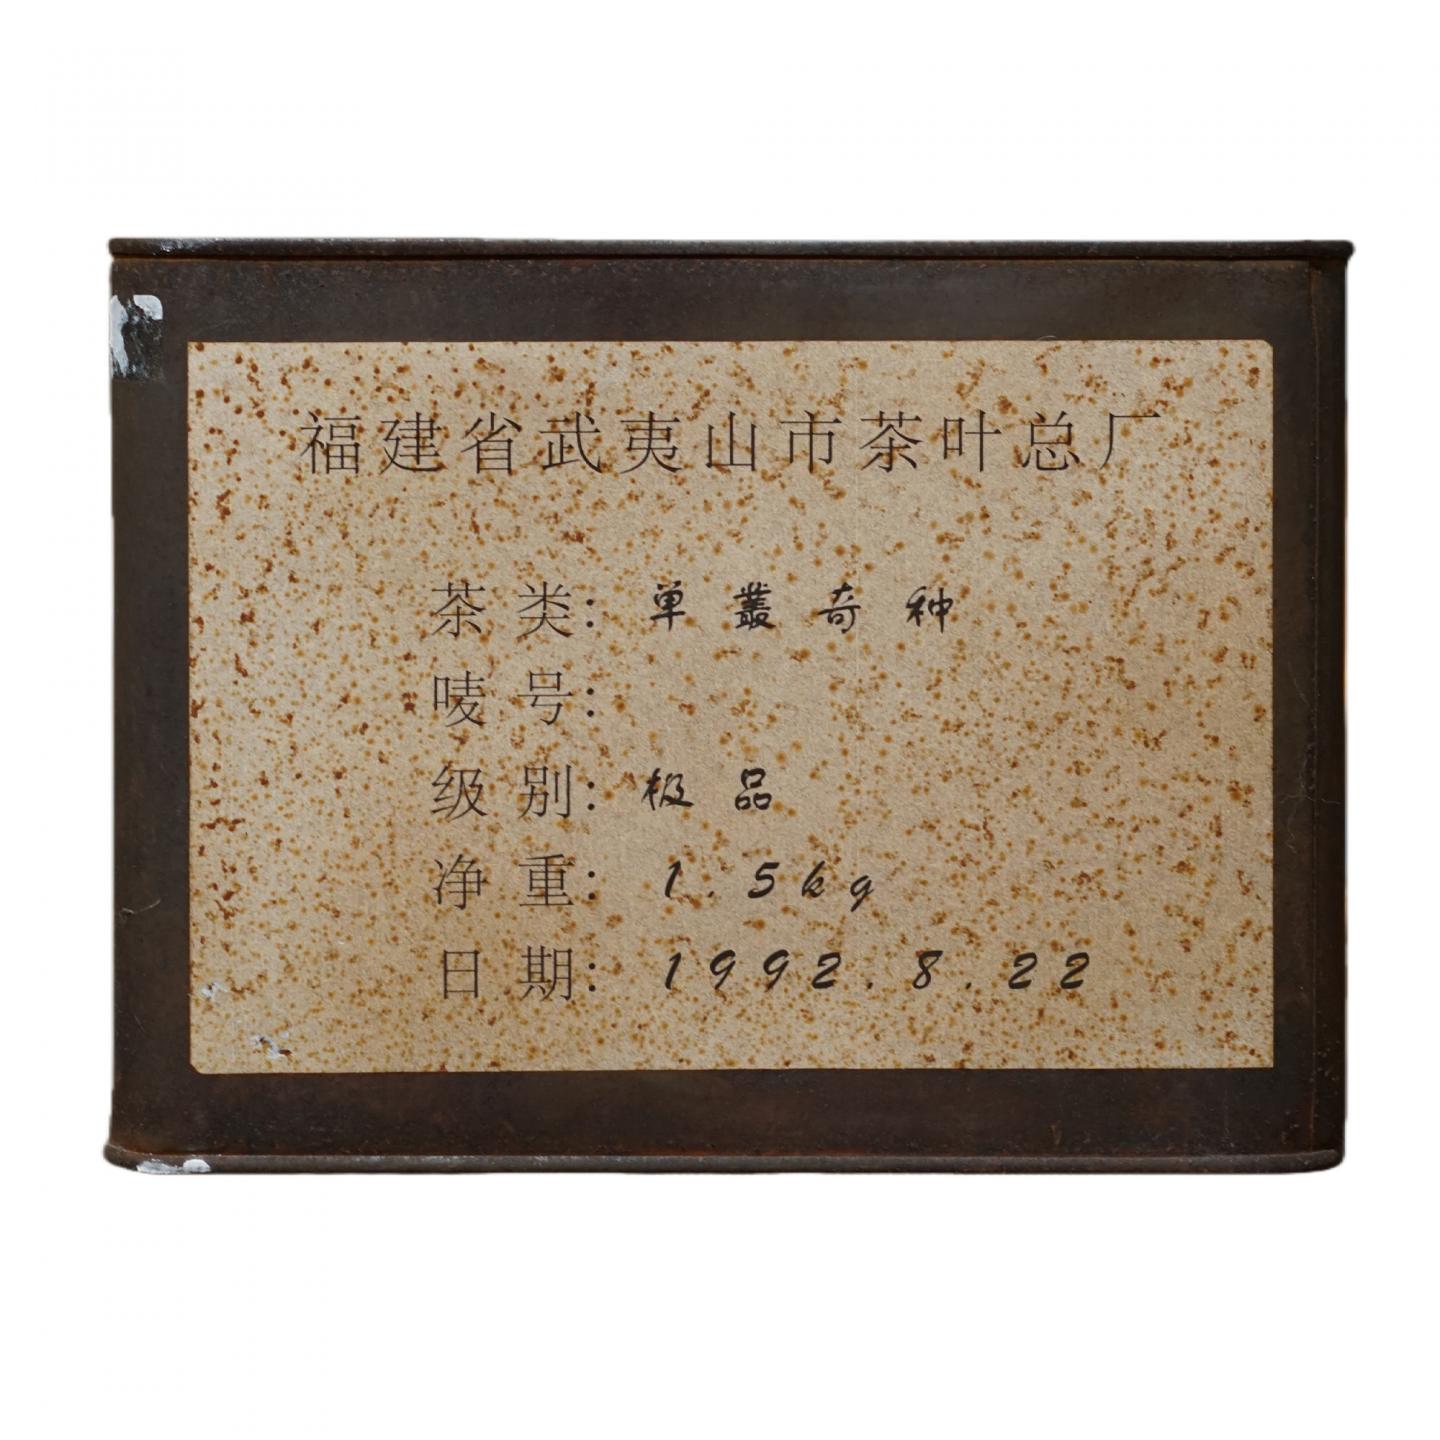 福建省武夷山市茶叶总厂
茶类：单叢奇种
唛号：
级别：极品
净重：1.5kg
日期：1992.8.22